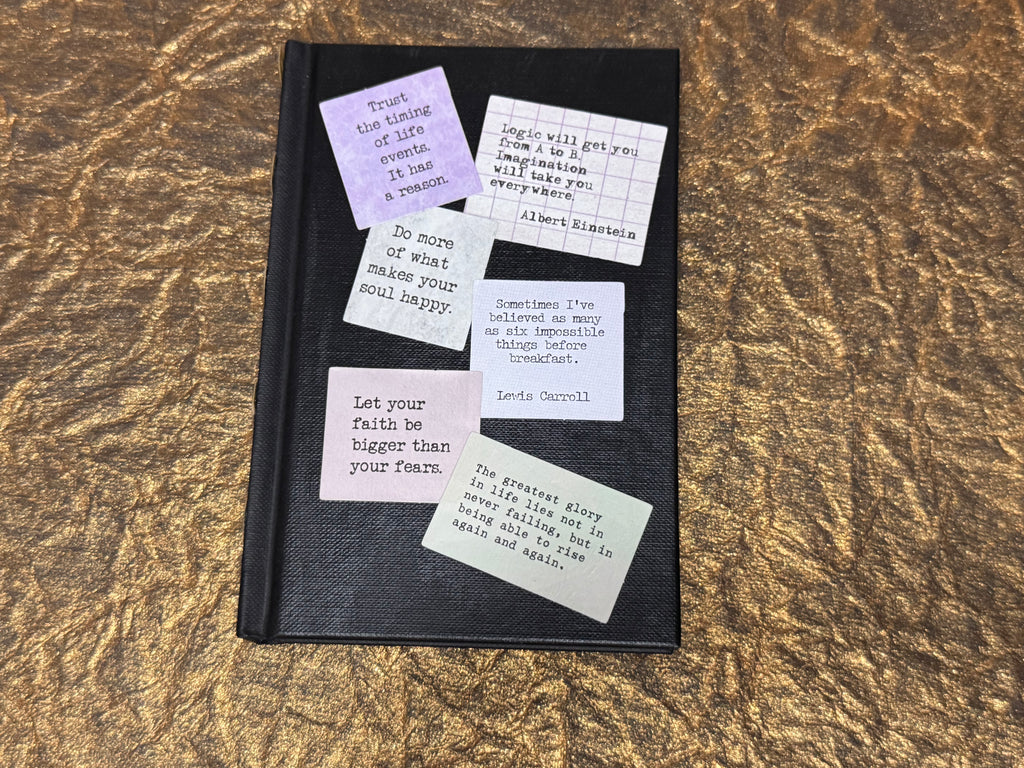 Trust
the timing
of life
events.
It has
a reason.
Logic will get you
from A to B.
Imagination
will take you
everywhere.
Albert Einstein
Do more
of what
makes your
soul happy.
Sometimes I've
believed as many
as six impossible
things before
breakfast.
Lewis Carroll
Let your
faith be
bigger than
your fears.
The greatest glory
in life lies not in
never failing, but in
being able to rise
again and again.